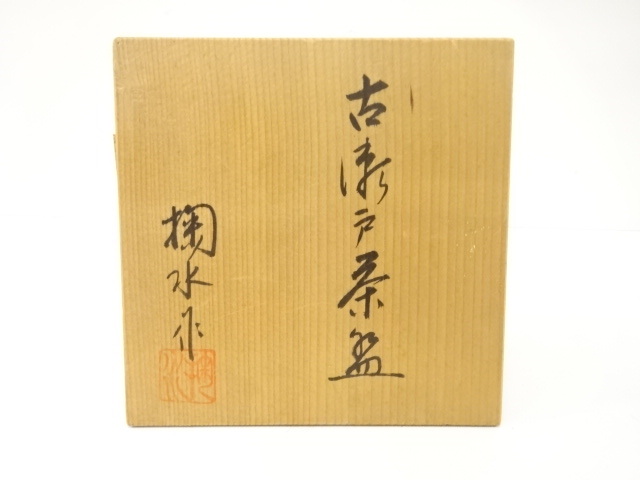 古瀬戸茶盌
掬水作